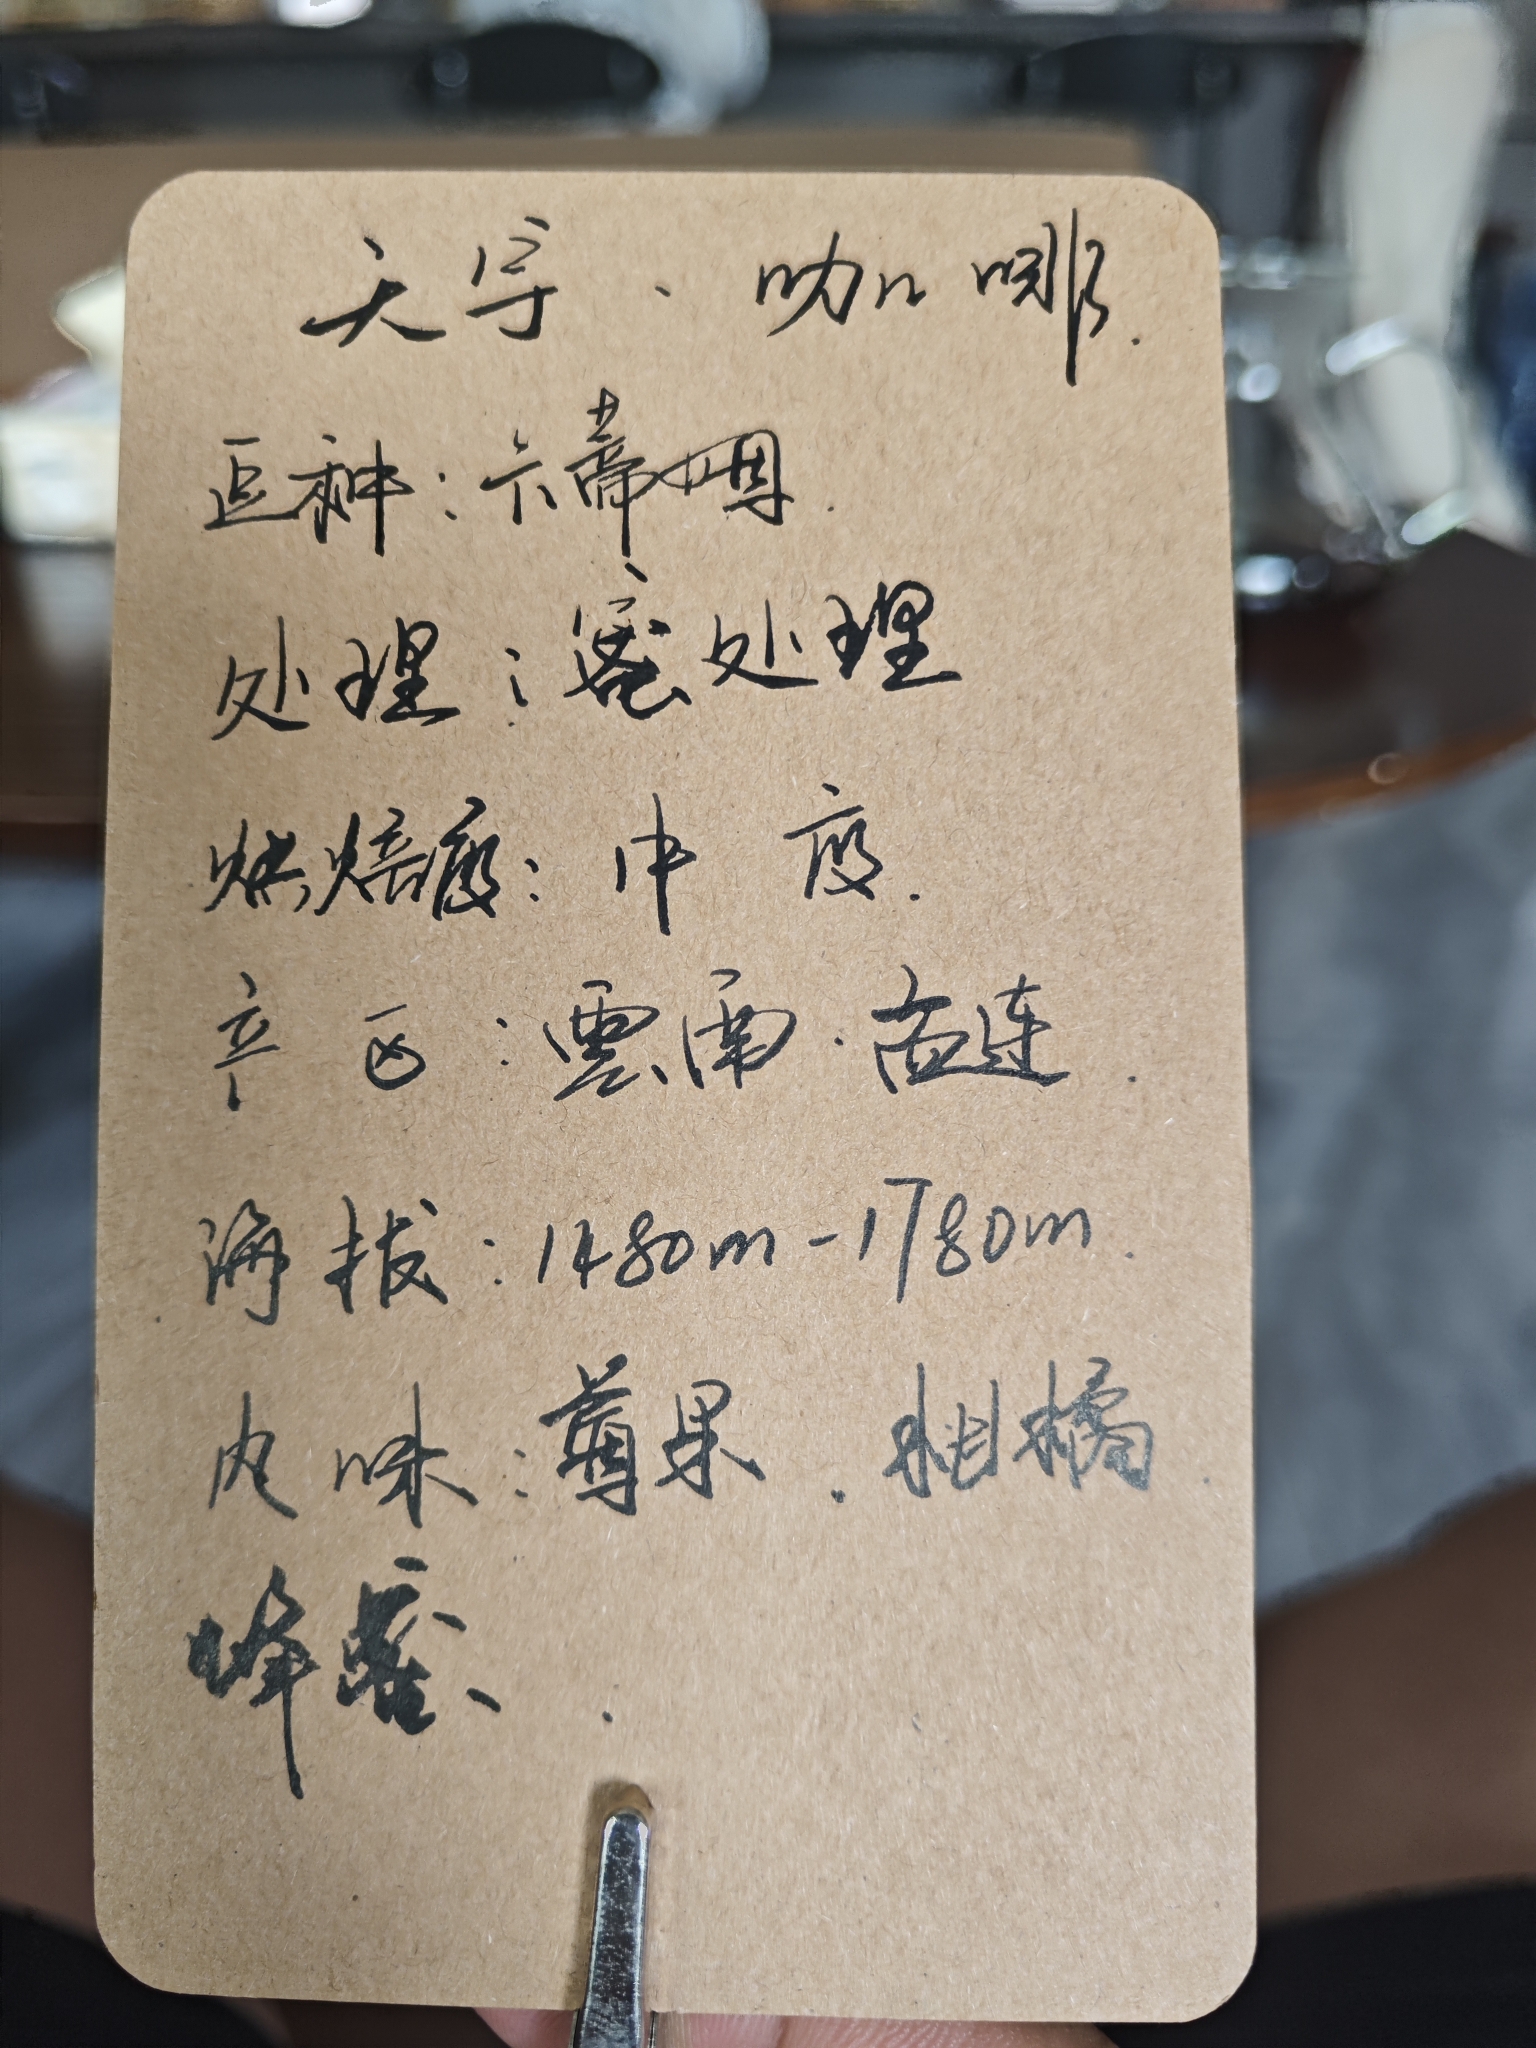 天宇·咖啡.
豆种:卡蒂姆.
处理:蜜处理
烘焙度:中度.
产区:雲南·孟连.
海拔:1480m-1780m.
风味:莓果.柑橘.
蜂蜜.